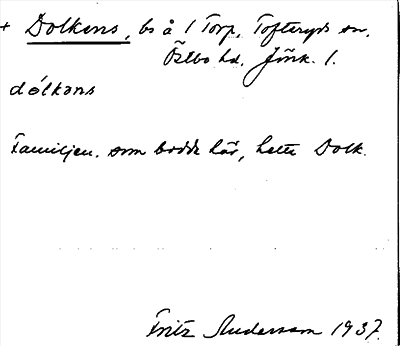 + Dolkens, bs å 1 Torp, Tofteryds sn.
Östbo hd. Jönk. l.
dólkəns
Familjen, som bodde här, hette Dolk.
Fritz Andersson 1937.